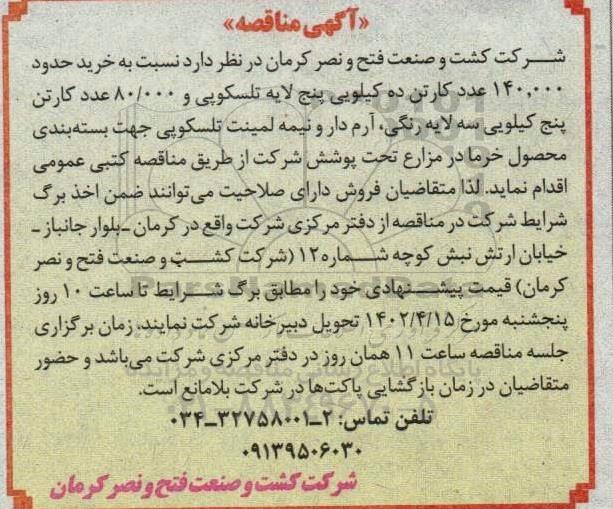 «آگهی مناقصه»
شرکت کشت و صنعت فتح و نصر کرمان در نظر دارد نسبت به خرید حدود
۱۴۰,۰۰۰ عدد کارتن ده کیلویی پنج لایه تلسکوپی و ۸۰/۰۰۰ عدد کارتن
پنج کیلویی سه لایه رنگی، آرم دار و نیمه لمینت تلسکوپی جهت بسته‌بندی
محصول خرما در مزارع تحت پوشش شرکت از طریق مناقصه کتبی عمومی
اقدام نماید. لذا متقاضیان فروش دارای صلاحیت می‌توانند ضمن اخذ برگ
شرایط شرکت در مناقصه از دفتر مرکزی شرکت واقع در کرمان ـ بلوار جانباز ـ
خیابان ارتش نبش کوچه شماره ۱۲ (شرکت کشت و صنعت فتح و نصر
کرمان) قیمت پیشنهادی خود را مطابق برگ شرایط تا ساعت ۱۰ روز
پنجشنبه مورخ ۱۴۰۲/۴/۱۵ تحویل دبیرخانه شرکت نمایند. زمان برگزاری
جلسه مناقصه ساعت ۱۱ همان روز در دفتر مرکزی شرکت می‌باشد و حضور
متقاضیان در زمان بازگشایی پاکت‌ها در شرکت بلامانع است.
تلفن تماس: ۲ـ۳۲۷۵۸۰۰۱ـ۰۳۴
۰۹۱۳۹۵۰۶۰۳۰
شرکت کشت و صنعت فتح و نصر کرمان